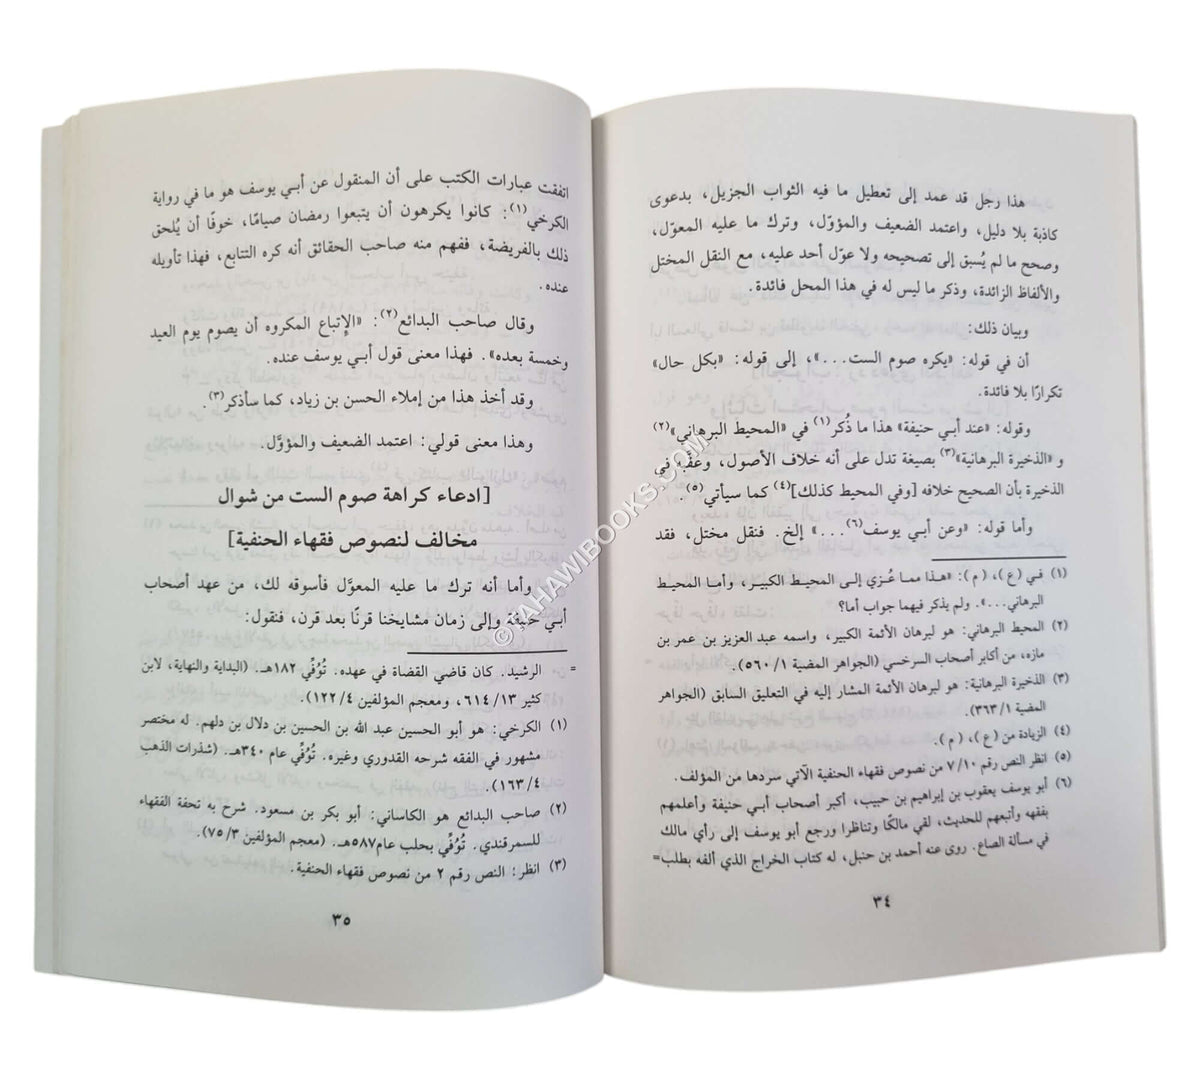 هذا رجل قد عمد إلى تعطيل ما فيه الثواب الجزيل، بدعوى
كاذبة بلا دليل، واعتمد الضعيف والمؤوّل، وترك ما عليه المعوّل،
وصحح ما لم يُسبق إلى تصحيحه ولا عوّل أحد عليه، مع النقل المختل
والألفاظ الزائدة، وذكر ما ليس له في هذا المحل فائدة.
وبيان ذلك:
أن في قوله: «يكره صوم الست...»، إلى قوله: «بكل حال»
تكرارًا بلا فائدة.
وقوله: «عند أبي حنيفة» هذا ما ذُكر(١) في «المحيط البرهاني»(٢)
و«الذخيرة البرهانية»(٣) بصيغة تدل على أنه خلاف الأصول، وعقبه في
الذخيرة بأن الصحيح خلافه [وفي المحيط كذلك](٤) كما سيأتي(٥).
وأما قوله: «وعن أبي يوسف(٦)...» إلخ. فنقل مختل، فقد
(١) في (ع)، (م): «هذا مما عُزي إلى المحيط الكبير، وأما المحيط
البرهاني...». ولم يذكر فيهما جواب أما؟
(٢) المحيط البرهاني: هو لبرهان الأئمة الكبير، واسمه عبد العزيز بن عمر بن
مازه، من أكابر أصحاب السرخسي (الجواهر المضية ١/ ٥٦٠).
(٣) الذخيرة البرهانية: هو لبرهان الأئمة المشار إليه في التعليق السابق (الجواهر
المضية ١/ ٣٦٣).
(٤) الزيادة من (ع)، (م).
(٥) انظر النص رقم ٧/١٠ من نصوص فقهاء الحنفية الآتي سردها من المؤلف.
(٦) أبو يوسف يعقوب بن إبراهيم بن حبيب، أكبر أصحاب أبي حنيفة وأعلمهم
بفقهه وأتبعهم للحديث، لقي مالكًا وتناظرا ورجع أبو يوسف إلى رأي مالك
في مسألة الصاع. روى عنه أحمد بن حنبل، له كتاب الخراج الذي ألفه بطلب=
٣٤
اتفقت عبارات الكتب على أن المنقول عن أبي يوسف هو ما في رواية
الكرخي(١): كانوا يكرهون أن يتبعوا رمضان صيامًا، خوفًا أن يُلحق
ذلك بالفريضة، ففهم منه صاحب الحقائق أنه كره التتابع، فهذا تأويله
عنده.
وقال صاحب البدائع(٢): «الإتباع المكروه أن يصوم يوم العيد
وخمسة بعده». فهذا معنى قول أبي يوسف عنده.
وقد أخذ هذا من إملاء الحسن بن زياد، كما سأذكر(٣).
وهذا معنى قولي: اعتمد الضعيف والمؤوَّل.
[ادعاء كراهة صوم الست من شوال
مخالف لنصوص فقهاء الحنفية]
وأما أنه ترك ما عليه المعوَّل فأسوقه لك، من عهد أصحاب
أبي حنيفة وإلى زمان مشايخنا قرنًا بعد قرن، فنقول:
= الرشيد. كان قاضي القضاة في عهده. تُوُفِّي ١٨٢هـ. (البداية والنهاية، لابن
كثير ١٣/ ٦١٤، ومعجم المؤلفين ٤/ ١٢٢).
(١) الكرخي: هو أبو الحسين عبد الله بن الحسين بن دلال بن دلهم. له مختصر
مشهور في الفقه شرحه القدوري وغيره. تُوُفِّي عام ٣٤٠هـ. (شذرات الذهب
٤/ ١٦٣).
(٢) صاحب البدائع هو الكاساني: أبو بكر بن مسعود. شرح به تحفة الفقهاء
للسمرقندي. تُوُفِّي بحلب عام٥٨٧هـ. (معجم المؤلفين ٣/ ٧٥).
(٣) انظر: النص رقم ٢ من نصوص فقهاء الحنفية.
٣٥
© TAHAWIBOOKS.COM